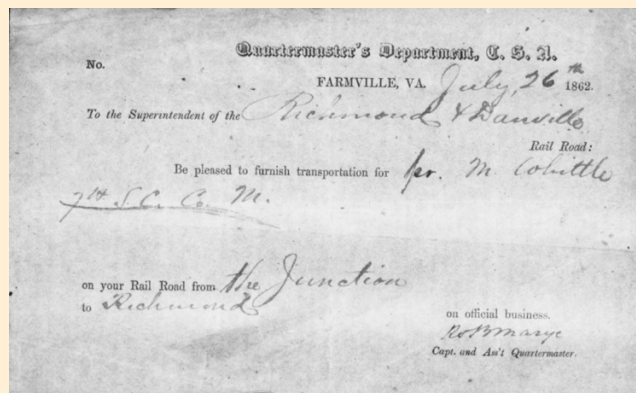 Quartermaster's Department, C. S. A.
No.
FARMVILLE, VA. July, 26th 1862.
To the Superintendent of the Richmond & Danville
Rail Road:
Be pleased to furnish transportation for pr. M.
7th S.C. Co. M.
on your Rail Road from the Junction
to Richmond
on official business.
Capt. and Ass't Quartermaster.